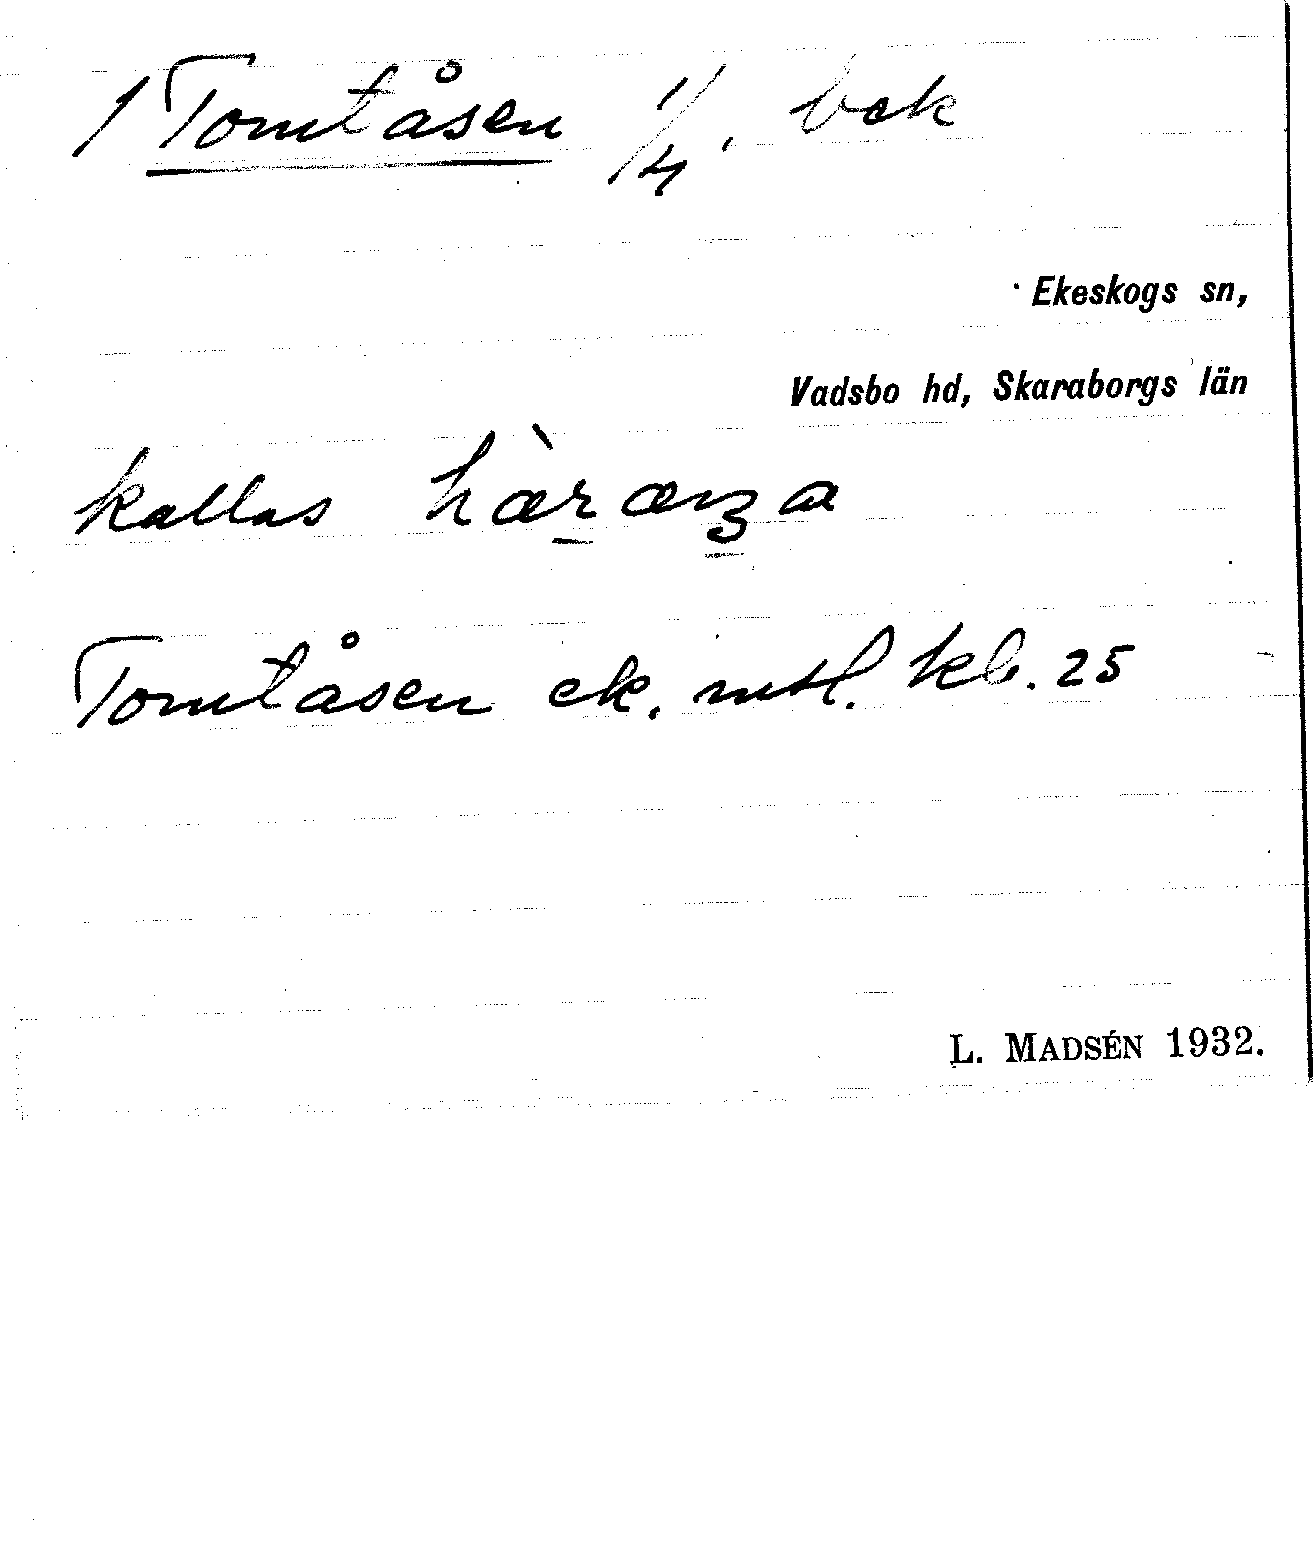 1 Tomtåsen 1/4, bek
Ekeskogs sn,
Vadsbo hd, Skaraborgs län
kallas
Tomtåsen ek. mtl. kb. 25
L. MADSÉN 1932.